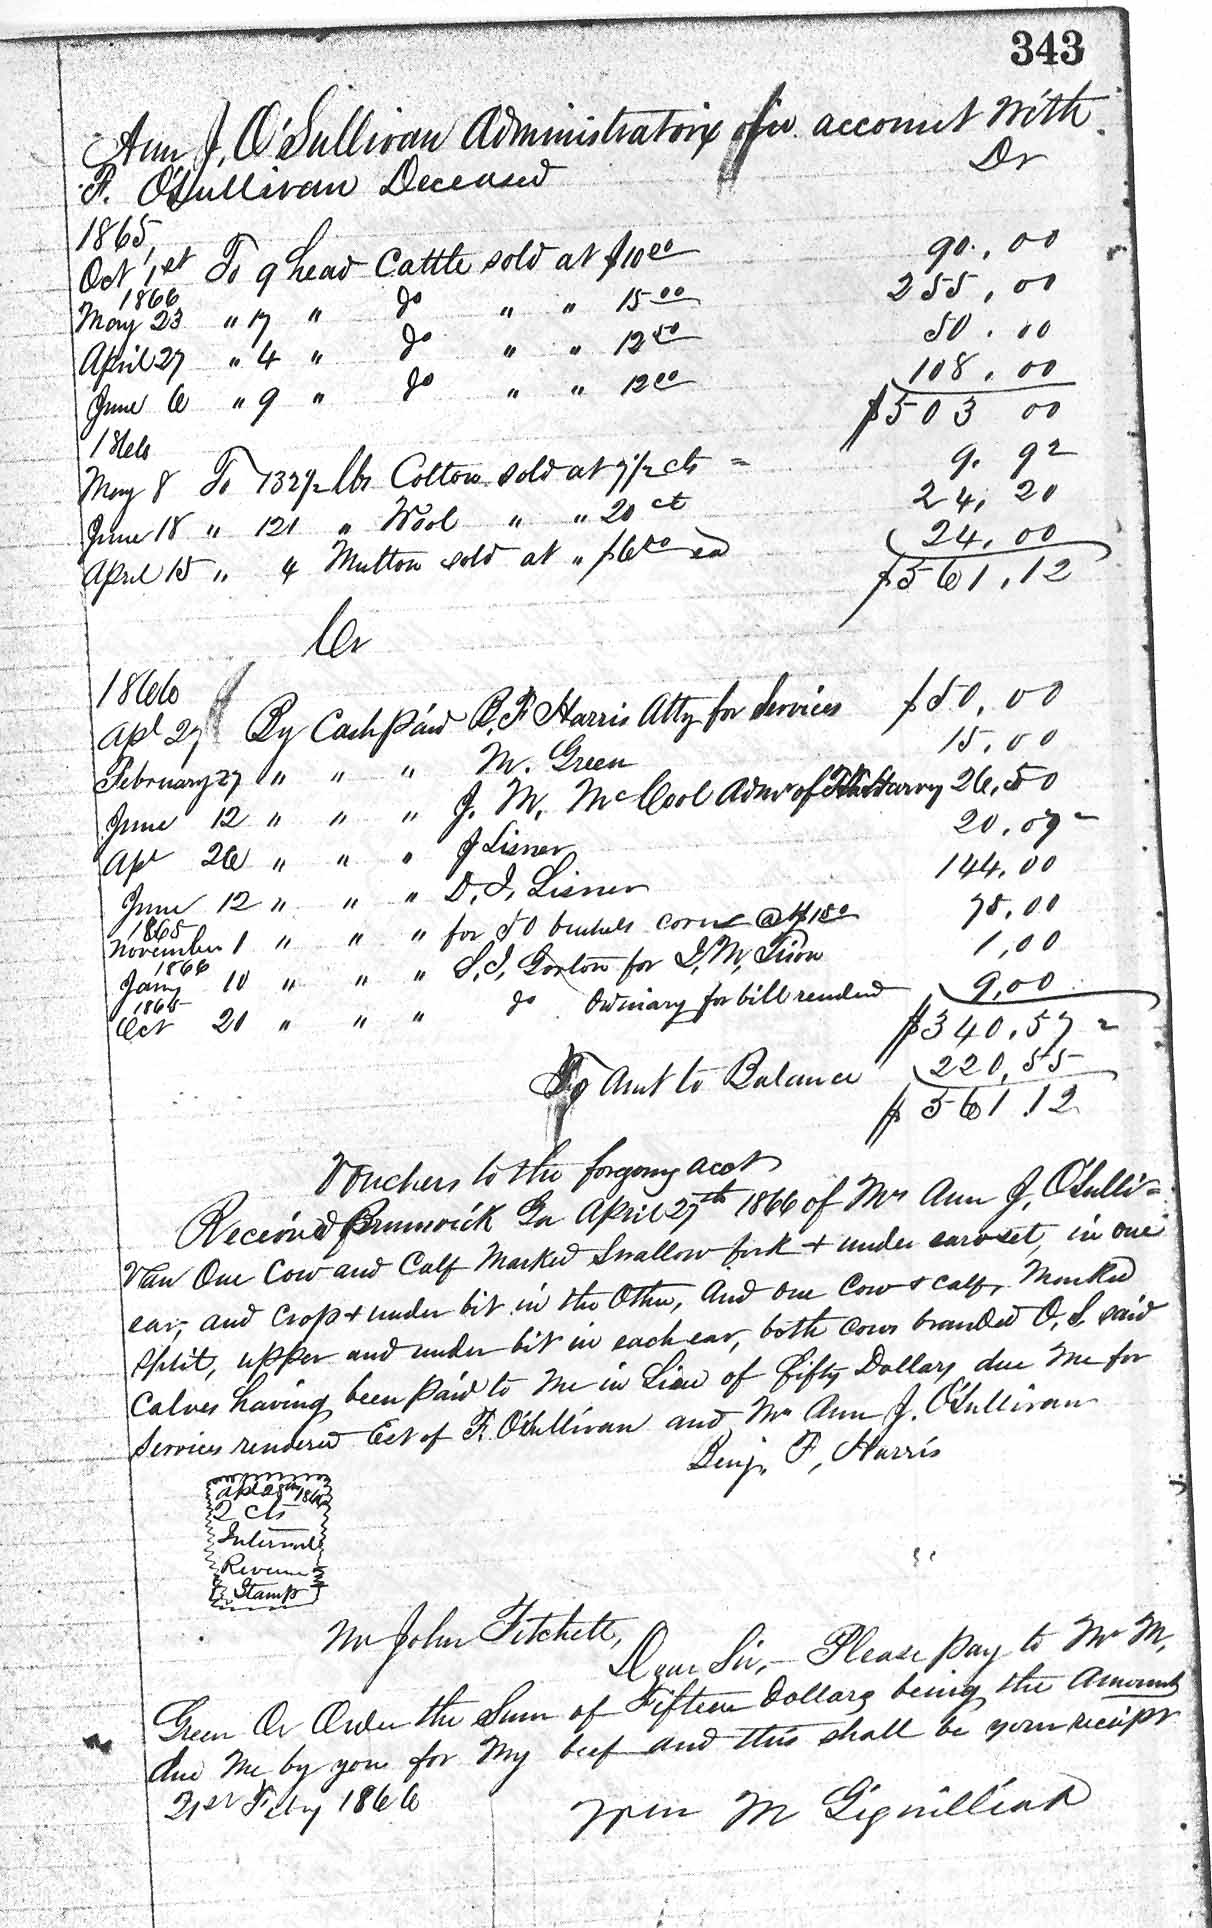 343
Ann J. O'Sullivan Administratrix in account With
F. O'Sullivan Deceased Dr
1865
Oct 1st To 9 head Cattle sold at $10 00 90.00
1866
May 23 " 17 " do " " 15 00 255.00
April 27 " 4 " do " " 12 50 50.00
June 6 " 9 " do " " 12 00 108.00
$503 00
1866
May 8 To 132 1/2 lbs Cotton sold at 7 1/2 cts = 9.92
June 18 " 121 " Wool " " 20 ct 24.20
April 15 " 4 Mutton sold at " $6 00 ea 24.00
$561.12
Cr
1866
Apl 27 By Cash paid B. F. Harris Atty for Services $50.00
February 27 " " " M. Green 15.00
June 12 " " " J. M. McCool Admr of Harvey 26.50
Apr 26 " " " J Lisner 20.07
June 12 " " " D. J. Lisner 144.00
1865
November 1 " " " for 50 bushels corn @ $1 50 75.00
1866
Jany 10 " " " S. J. Gorton for J. M. Tison 1.00
1865
Oct 20 " " " do Ordinary for bill rendered 9.00
$340.57
To Amt to Balance 220.55
$561.12
Vouchers to the forgoing acct
Received Brunswick Ga April 27th 1866 of Mrs Ann J. O'Sulli=
van One Cow and Calf Marked Swallow fork + under in one
ear, and Crop + under bit in the Other, And one Cow + calf, Marked
Split, upper and under bit in each ear, both cows branded O. S. said
Calves having been paid to Me in Lieu of Fifty Dollars due Me for
Services rendered Est of F. O'Sullivan and Mrs Ann J. O'Sullivan
Benj. F. Harris
Apl 28th 1866
2 cts
Internal
Revenue
Stamp
Mr John Fitchett,
Dear Sir, - Please pay to Mr M.
Green Or Order the Sum of Fifteen Dollars being the Amount
due Me by you for My beef and this shall be your receipt
21st Feby 1866 Wm M Gignilliat